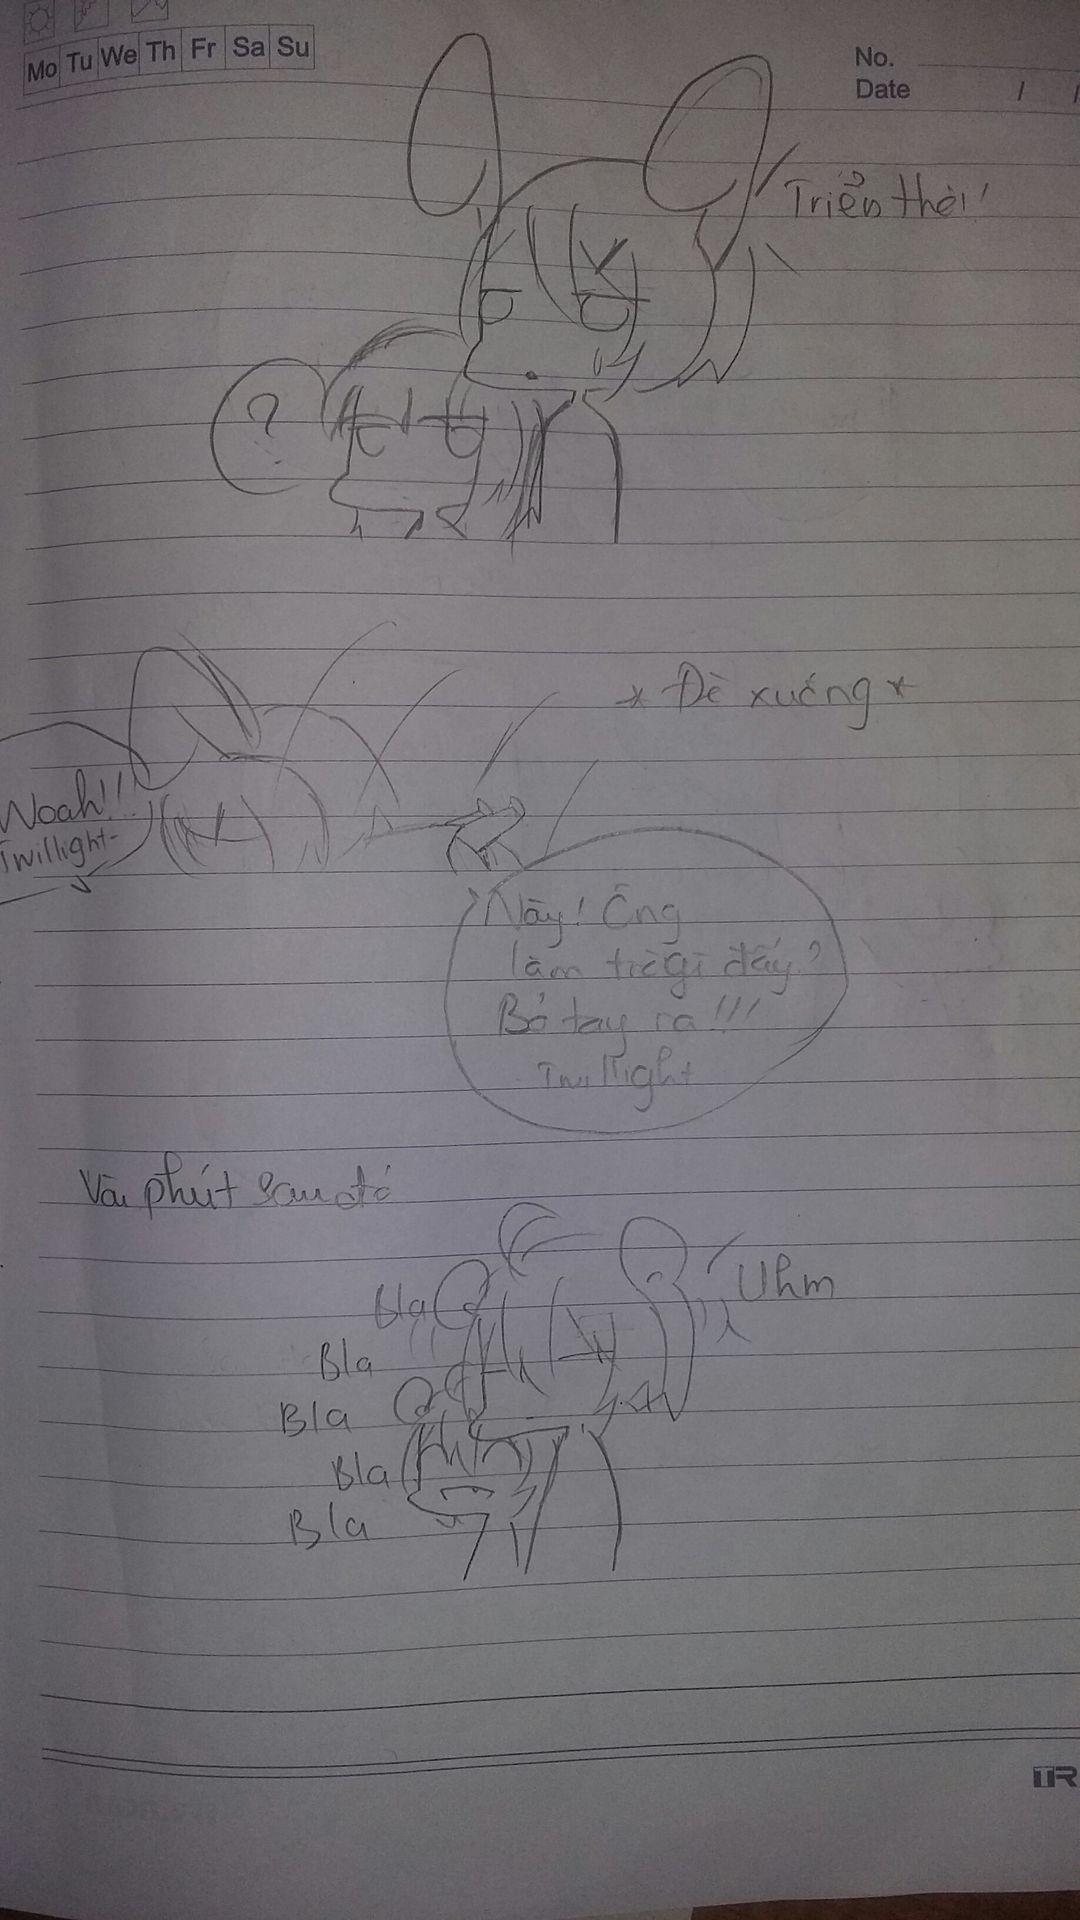 Mo Tu We Th Fr Sa Su
No.
Date / /
Triển thôi!
?
* Đè xuống *
Woah!!
Twillight-
Này! Ông
làm trò gì đấy?
Bỏ tay ra!!!
Twillight
Vài phút sau đó
Uhm
Bla
Bla
Bla
Bla
Bla
TR